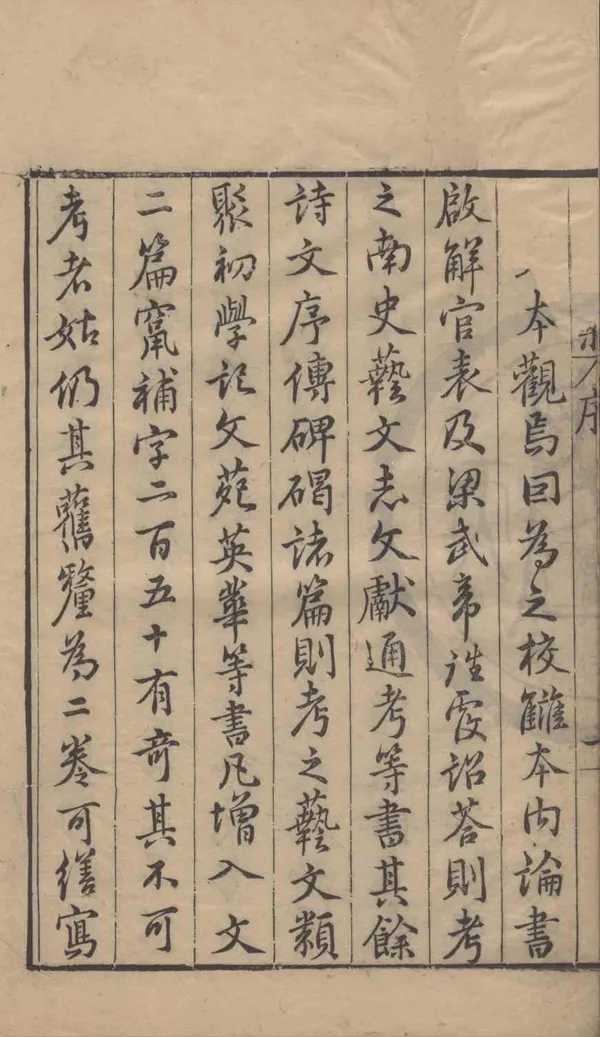 序
一
一本觀焉囙為之校讎本内論書
啟解官表及梁武帝諸覆詔荅則考
之南史藝文志文獻通考等書其餘
詩文序傳碑碣諸篇則考之藝文類
聚初學記文苑英華等書凡增入文
二篇竄補字二百五十有奇其不可
考者姑仍其舊釐為二卷可繕寫